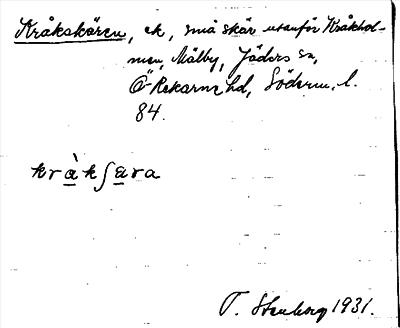 Kråkskären, ek, små skär utanför Kråkhol-
men, Mälby, Jäders sn,
Ö-Rekarne hd, Söderm. l.
84.
kràkʃära
T. Stenberg 1931.